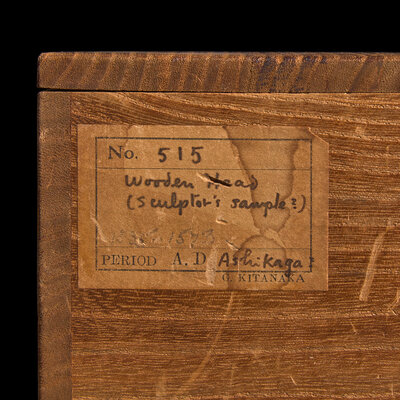 No. 515
Wooden Head
(Sculptor's sample?)
PERIOD A. D. Ashikaga?
G. KITANAKA